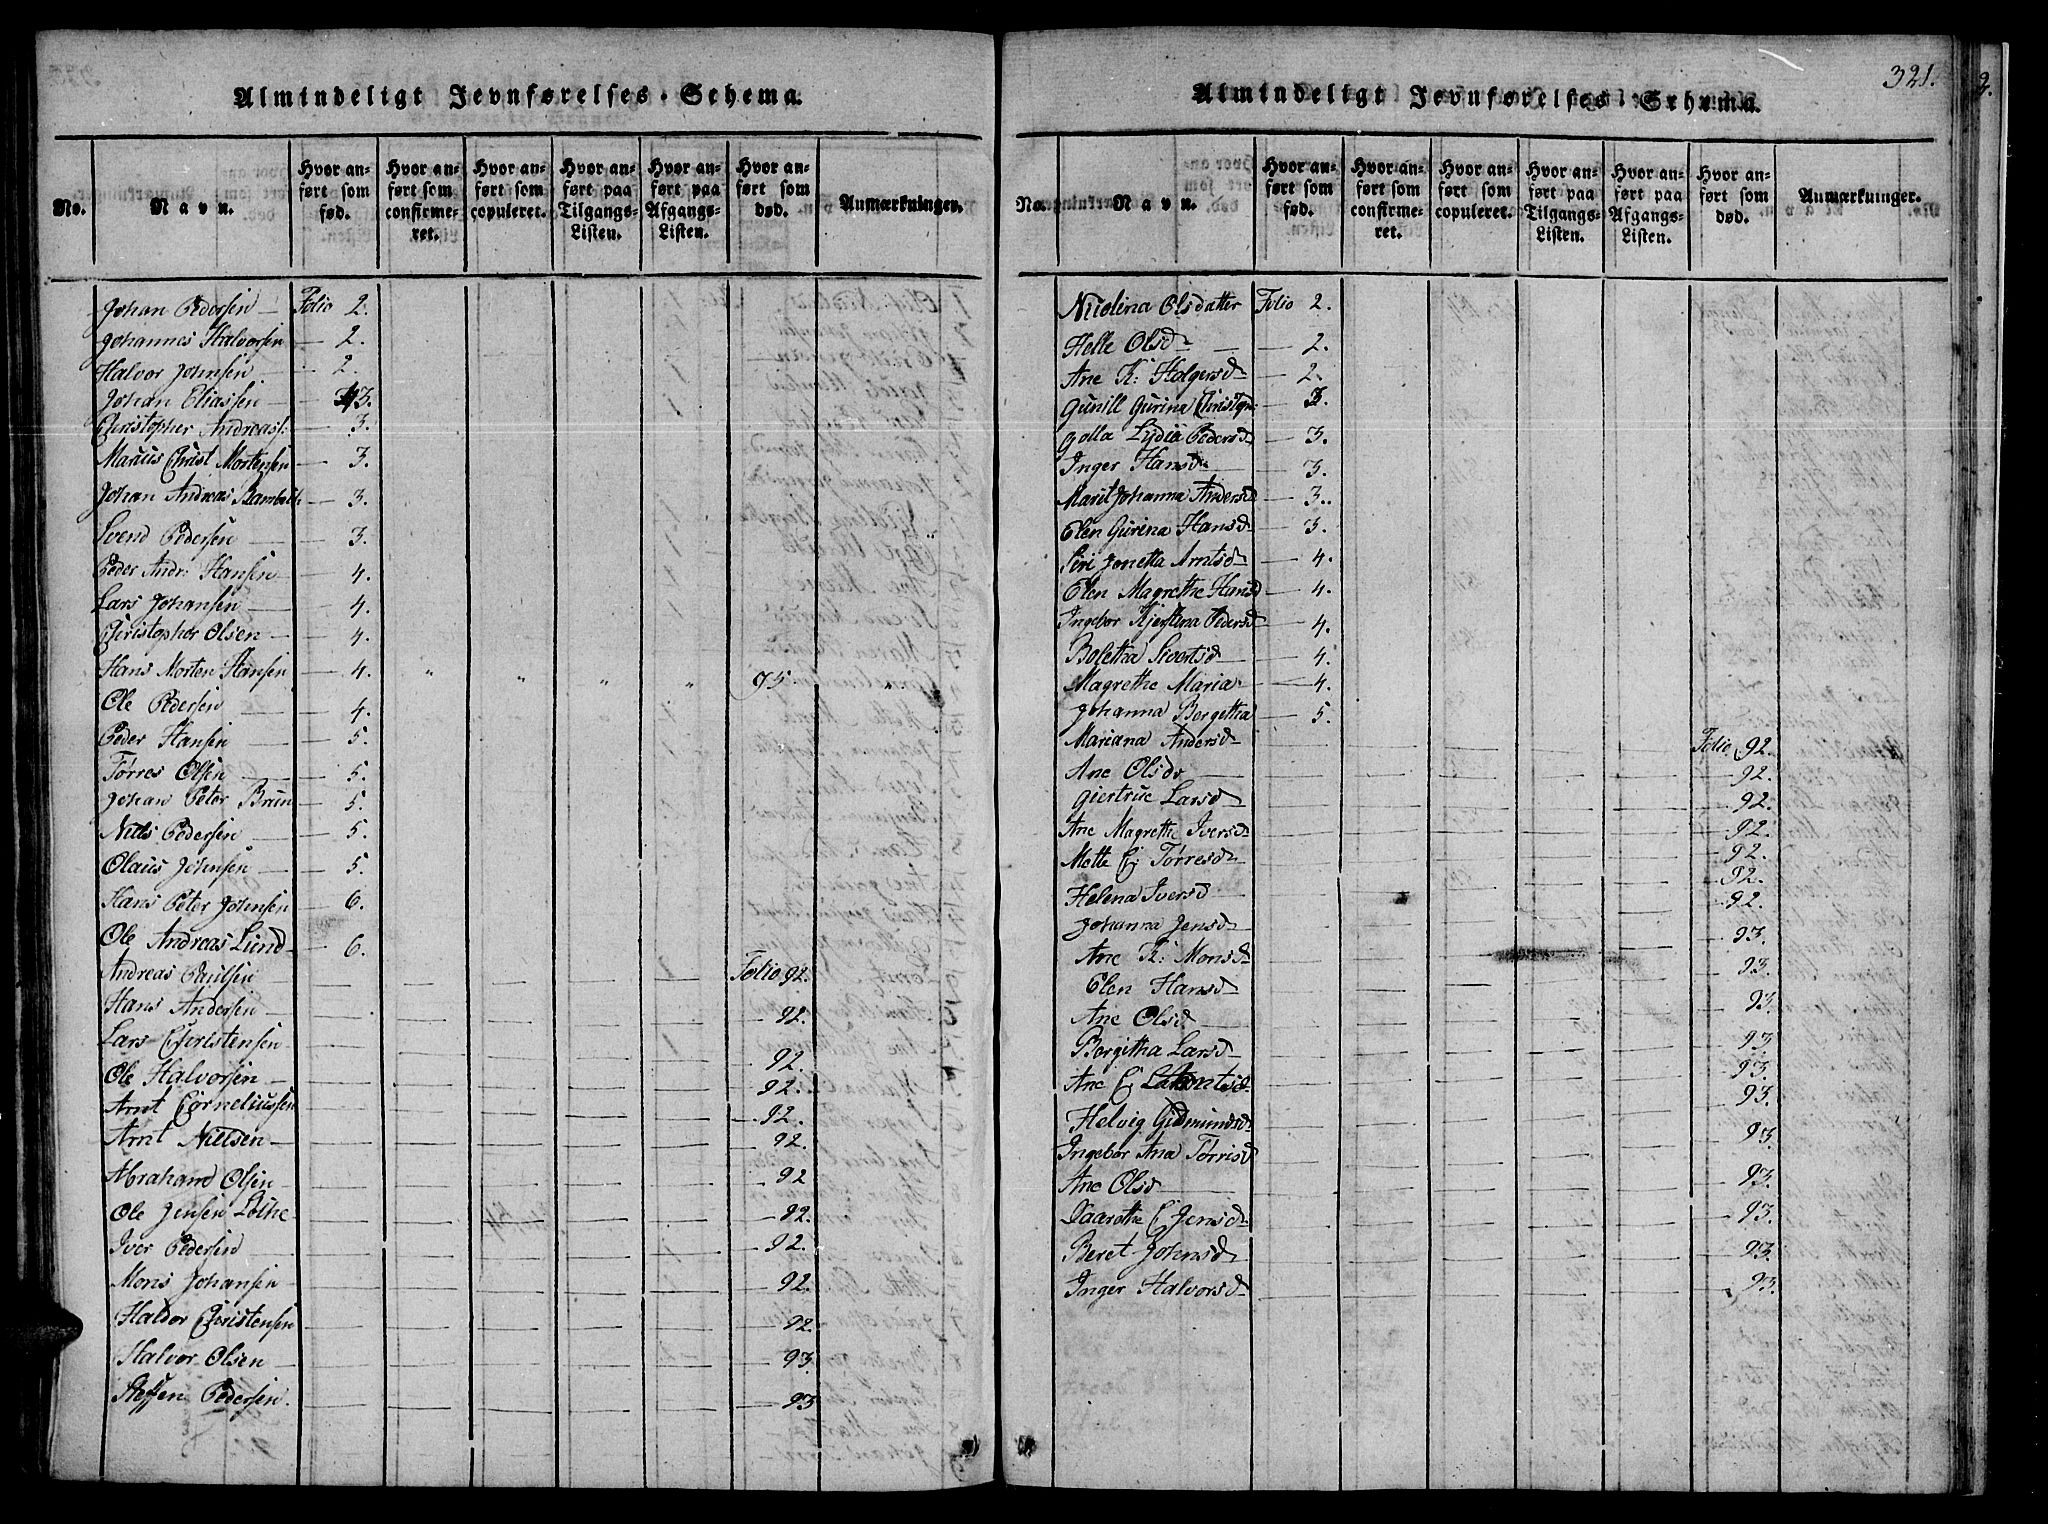 Almindeligt Jevnførelses-Schema.
No.
Navn.
Hvor anført som fød.
Hvor anført som confirmeret.
Hvor anført som copuleret.
Hvor anført paa Tilgangs-Listen.
Hvor anført paa Afgangs-Listen.
Hvor anført som død.
Anmærkninger.
Johan Pedersen Folio 2.
Johannes Halvorsen 2.
Halvor Johnsen 2.
Johan Eliassen 3.
Christopher Andreass: 3.
Marcus Christ Mortensen 3.
Johan Andreas 3.
Svend Pedersen 3.
Peder Andr: Hansen 4.
Lars Johansen 4.
Christopher Olsen 4.
Hans Morten Hansen 4. " " " " 95. "
Ole Pedersen 4.
Peder Hansen 5.
Tørres Olsen 5.
Johan Peter Brun 5.
Niels Pedersen 5.
Olaus Johnsen 5.
Hans Peter Johnsen 6.
Ole Andreas Lund 6.
Andreas Paulsen Folio 92.
Hans Andersen 92.
Lars Christensen 92.
Ole Halvorsen 92.
Arnt Corneliussen 92.
Arnt Nielsen 92.
Abraham Olsen 92
Ole Jensen Lothe 92.
Iver Pedersen 92.
Mons Johansen 92.
Haldor Christensen 92.
Halvor Olsen 93
Steffen Pedersen. 93
321.
Almindeligt Jevnførelses-Schema.
No.
Navn.
Hvor anført som fød.
Hvor anført som confirmeret.
Hvor anført som copuleret.
Hvor anført paa Tilgangs-Listen.
Hvor anført paa Afgangs-Listen.
Hvor anført som død.
Anmærkninger.
Nicolina Olsdatter Folio 2.
Helle Olsd 2.
Ane K: Holgersd 2.
Gunill Gurina 3.
Lydia Pedersd 3.
Inger Hansd 3.
Marit Johanna Andersd 3.
Elen Gurina Hansd 3.
Siri Jonetta Arntsd 4.
Elen Magrethe Hansd 4.
Ingebor Kjerstina Pedersd 4.
Boletha Sivertsd 4.
Magrethe Maria 4.
Johanna Bergetha 5.
Mariana Andersd Folio 92.
Ane Olsdr 92.
Giertrue Larsd 92.
Ane Magrethe Iversd 92.
Mette C: Tørresd 92.
Helena Iversd 92.
Johanna Jensd 92.
Ane K: Monsd 93.
Elen Hansd 93.
Ane Olsd 93.
Bergitha Larsd 93
Ane C 93.
Helvig Gudmundsd 93.
Ingebor Ana Tørrisd 93.
Ane Olsd 93.
Daarethe C Jensd 93.
Beret Johnsd 93.
Inger Halvorsd 93.